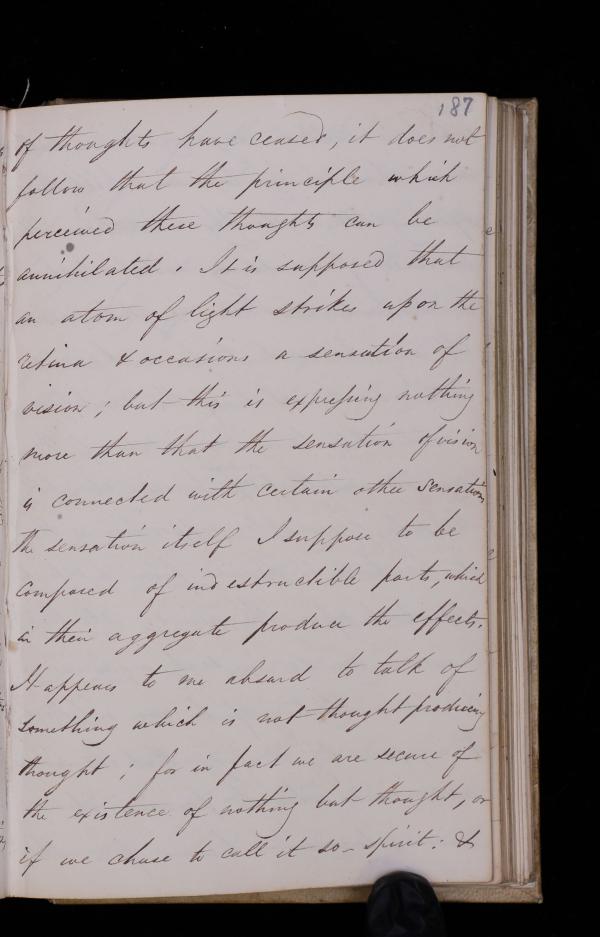 187
of thoughts have ceased, it does not
follow that the principle which
perceived these thoughts can be
annihilated. It is supposed that
an atom of light strikes upon the
retina & occasions a sensation of
vision; but this is expressing nothing
more than that the sensation of vision
is connected with certain other sensations
the sensation itself I suppose to be
composed of indestructible parts, which
in their aggregate produce the effects.
It appears to me absurd to talk of
something which is not thought producing
thought; for in fact we are secure of
the existence of nothing but thought, or
if we chuse to call it so - spirit: &